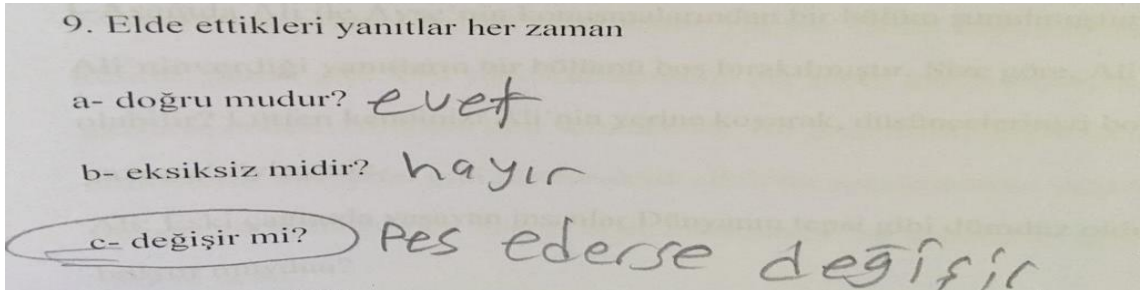 9. Elde ettikleri yanıtlar her zaman
a- doğru mudur? evet
b- eksiksiz midir? hayır
c- değişir mi? Pes ederse değişir